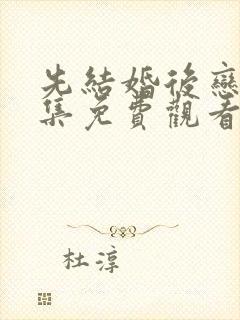 先結婚後戀
集免費觀看
杜淳